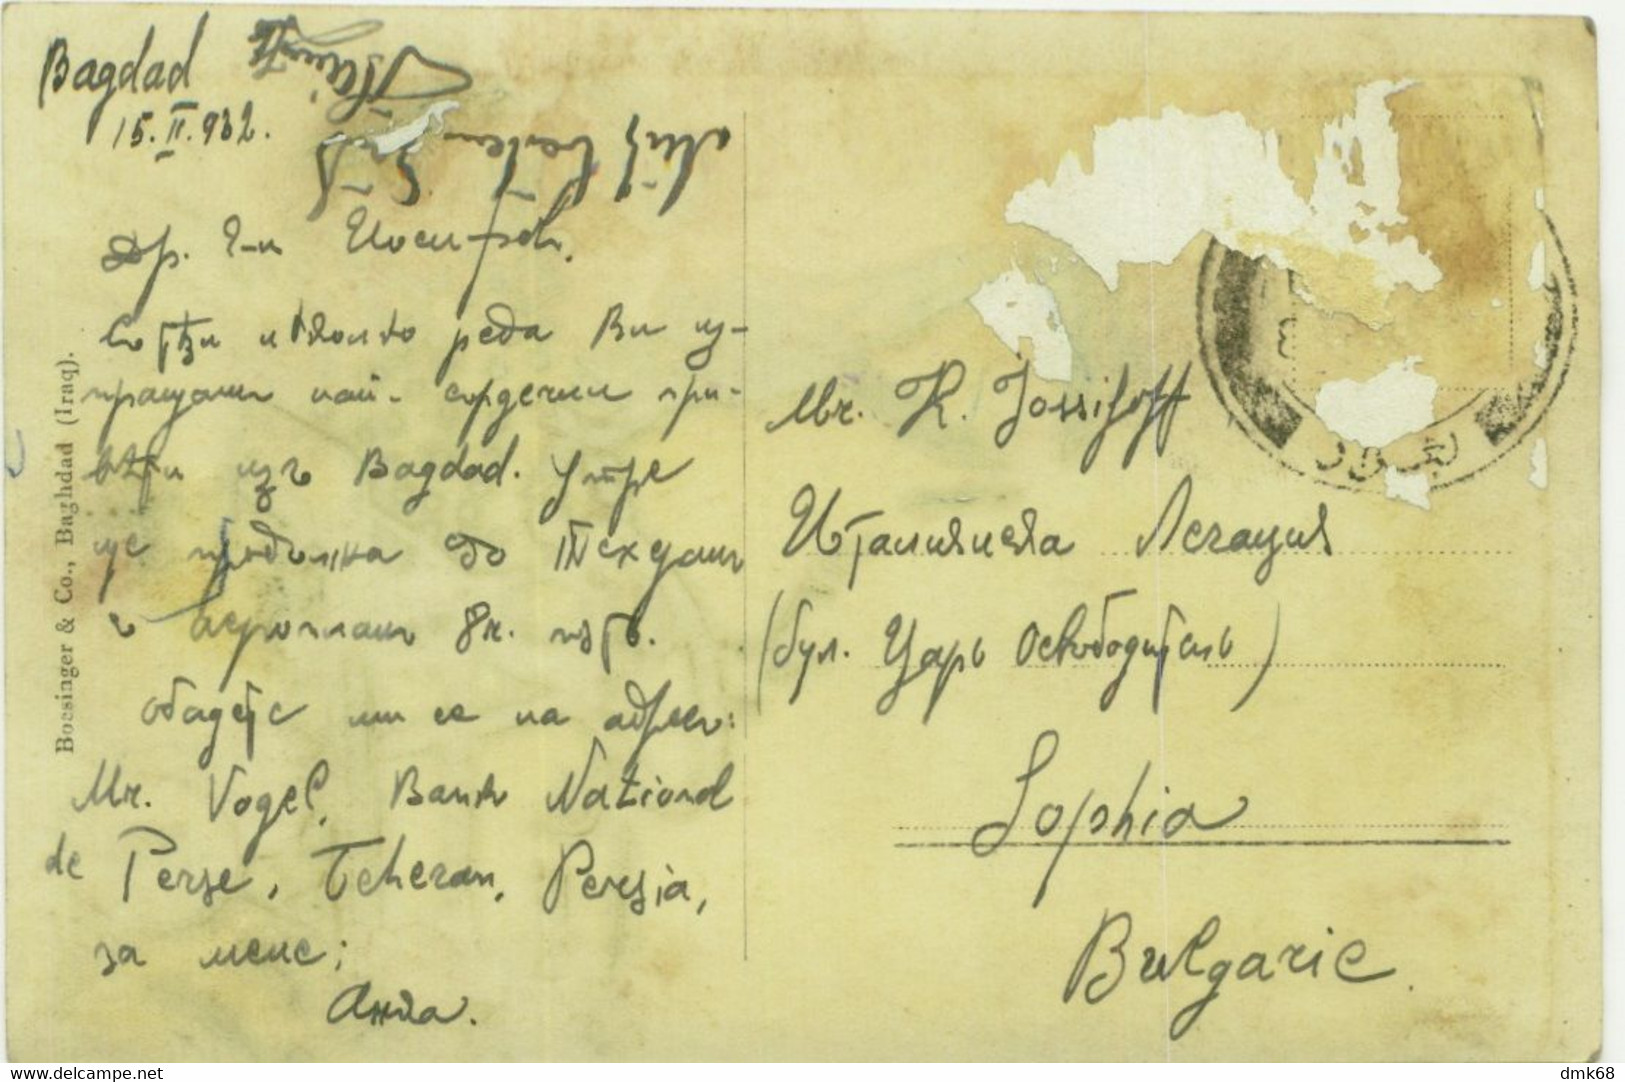 Bagdad
15.II.932.
Др. г-н Иосифовъ.
Съ тѣзи нѣколко реда Ви из-
пращамъ най-сърдечни при-
вѣти изъ Bagdad. Утре
ще продължа до Техеранъ
съ аеропланъ 8 ч. пѫть.
Обадете ми се на адресъ:
Mr. Vogel, Bank National
de Perse, Teheran, Persia,
за мене;
Mit besten Gruß
Mr. K. Jossifoff
Италиянска Легация
(бул. Царь Освободитель)
Sophia
Bulgarie
بغداد
Boesinger & Co., Baghdad (Iraq).
delcampe.net
dmk68